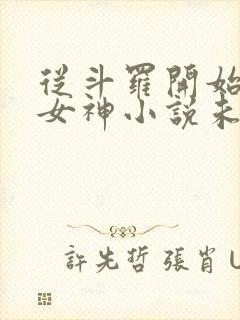 從斗羅開始
女神小說未
許先哲 張肖 U